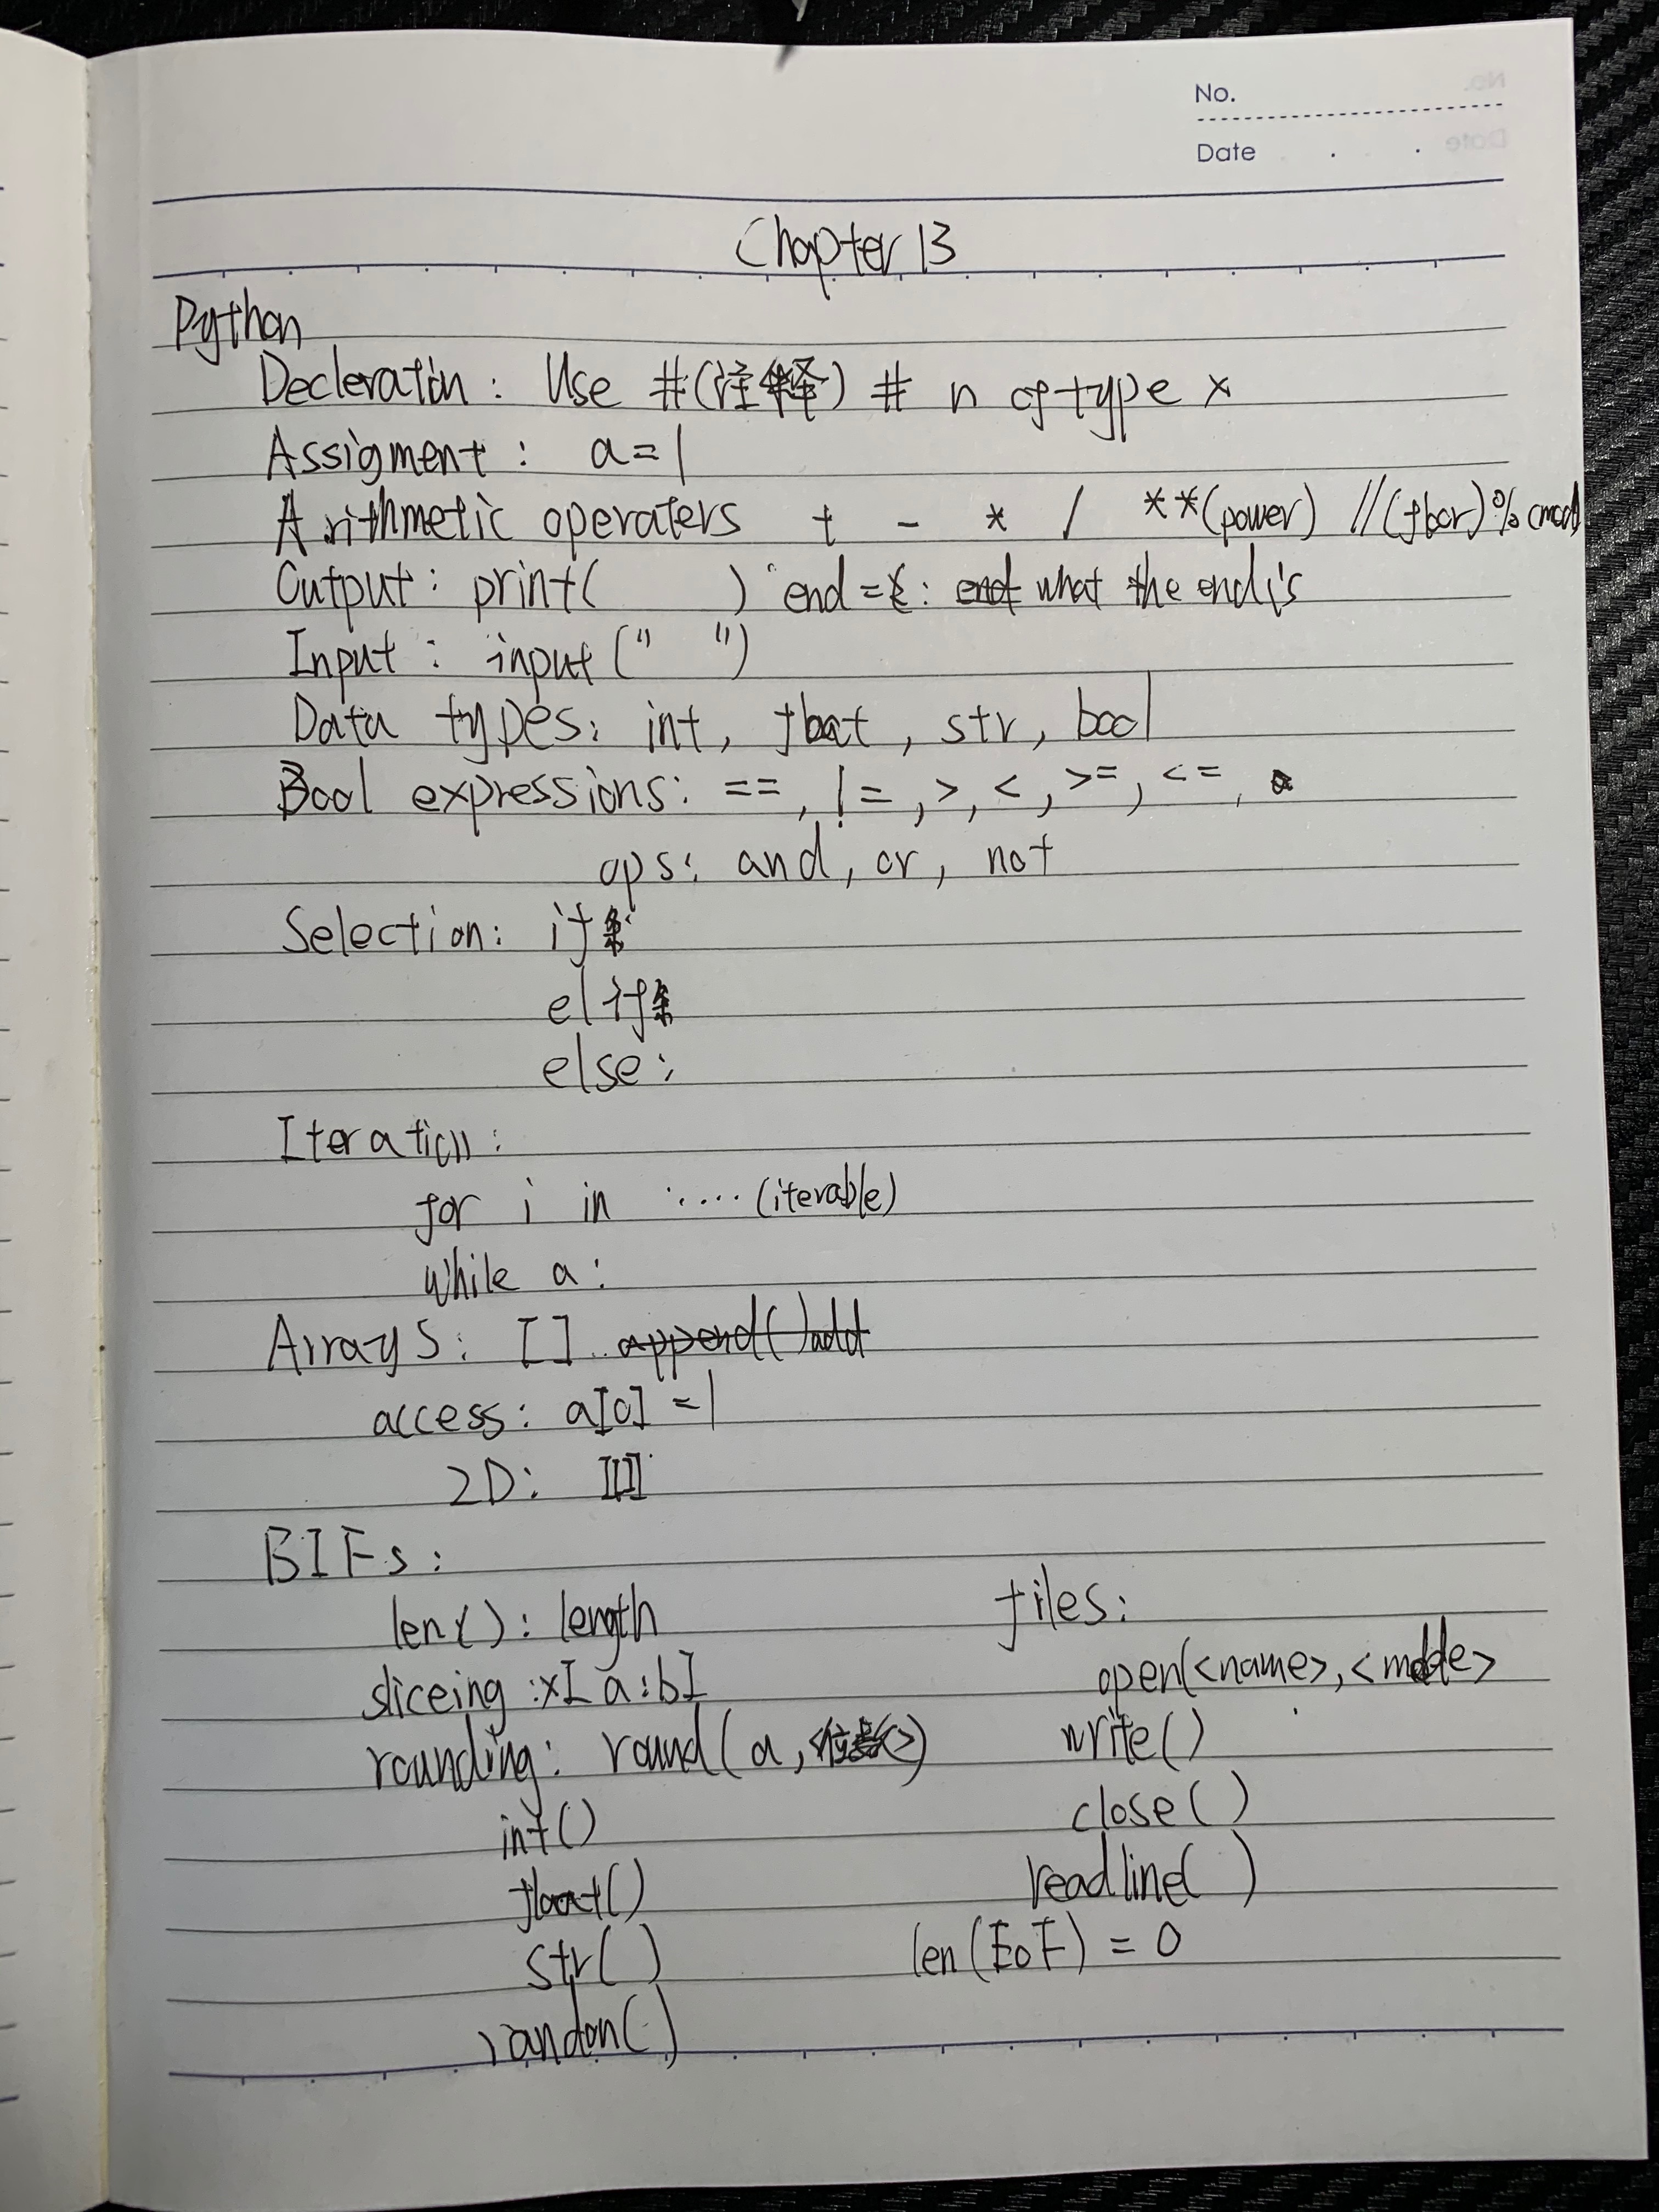 No.
Date
Chapter 13
Python
Decleration: Use #(注释) # n of type x
Assigment: a=1
Arithmetic operaters + - * / **(power) //(floor) % (mod)
Output: print( ) end= : what the end is
Input: input(" ")
Data types: int, float, str, bool
Bool expressions: ==, !=, >, <, >=, <=,
ops: and, or, not
Selection: if
elif
else:
Iteration:
for i in ..... (iterable)
while a:
Arrays: [] append() add
access: a[0] = 1
2D: [[]]
BIFs:
len(): length
sliceing: x[a:b]
rounding: round(a, <位数>)
int()
float()
str()
randon()
files:
open(<name>, <mode>
write()
close()
readline( )
len(EoF) = 0